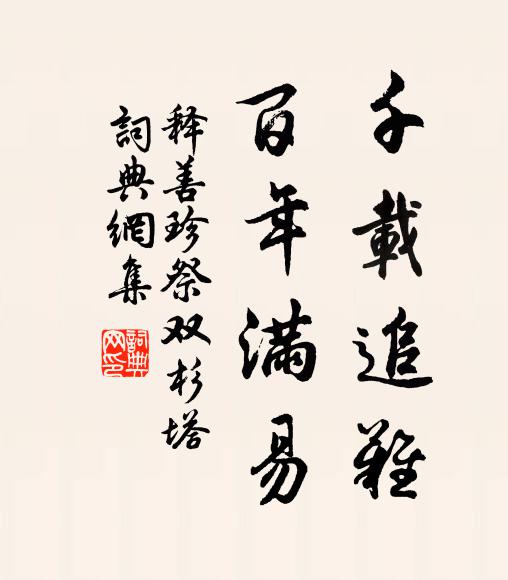 千載追難
百年滿易
释善珍祭双杉塔
詞典網集
詞典网印